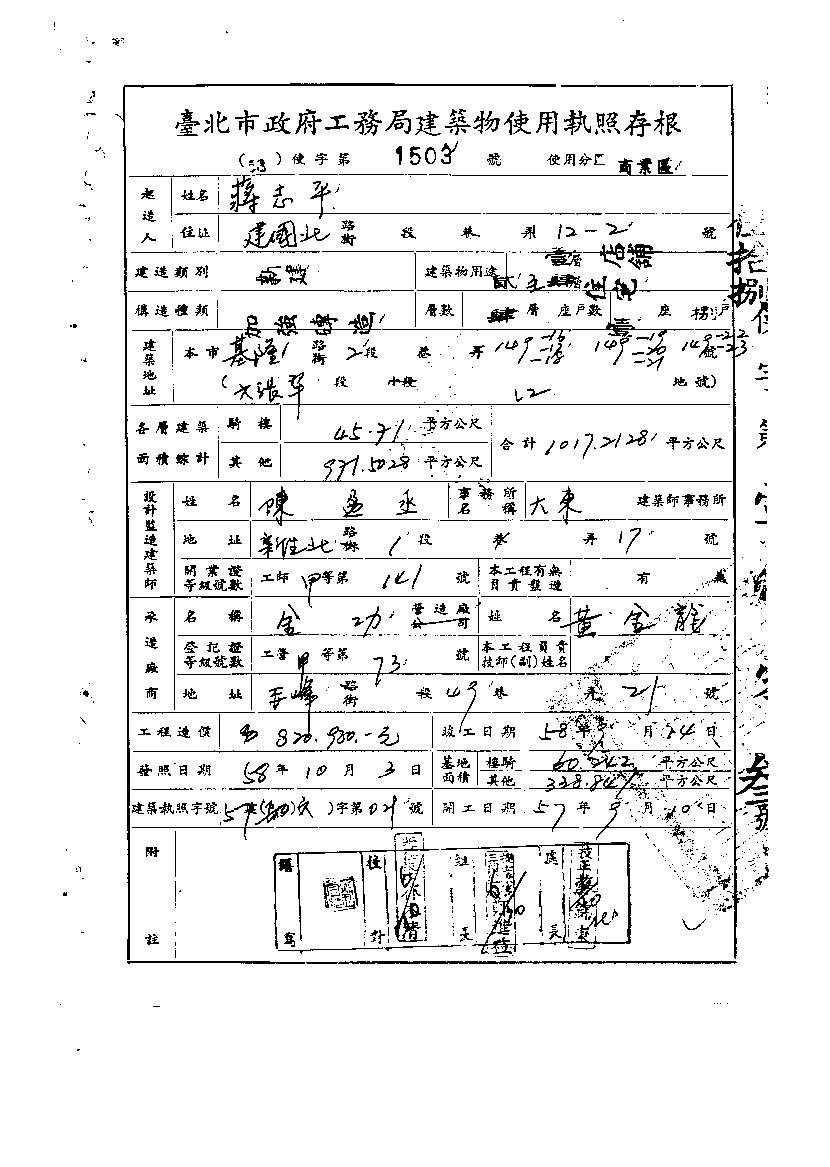 臺北市政府工務局建築物使用執照存根
(58)使字第 1503 號 使用分區 商業區
起造人 姓名 蔣志平
住址 建國北 路街 段 巷 弄 12-2 號
建造類別 新建 建築物用途 店鋪 住宅
構造種類 加強磚造 層數 肆 層 座戶數 座 捌 戶
建築地址 本市 基隆 路街 2 段 巷 弄 149 -16 -18 149 -19 -20 -21 149 -22 -23 號
(六張犁 段 小段 12 地號)
各層建築面積綜計 騎樓 45.71 平方公尺 合計 1017.2128 平方公尺
其他 971.5028 平方公尺
設計監造建築師 姓名 陳盈丞 事務所名稱 大東 建築師事務所
地址 新生北 路街 1 段 巷 弄 17 號
開業證等級號數 工師 甲 等第 141 號 本工程有無負責監造 有 無
承造廠商 名稱 金功 營造廠公司 姓名 黃金龍
登記證等級號數 工營 甲 等第 73 號 本工程負責技師(副)姓名
地址 玉峰 路街 段 49 巷 弄 21 號
工程造價 820.980.-元 竣工日期 58 年 9 月 24 日
發照日期 58 年 10 月 3 日 基地面積 騎樓 60.242 平方公尺
其他 328.847 平方公尺
建築執照字號 57 字第 021 號 開工日期 57 年 9 月 10 日
附註
繕寫 校對 股長 處長